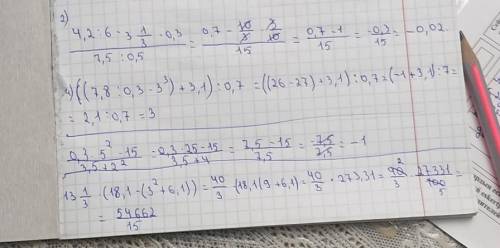 2)
(4,2 : 6 - 3 1/3 · 0,3) / (7,5 : 0,5) = (0,7 - 10/3 · 3/10) / 15 = (0,7 - 1) / 15 = -0,3 / 15 = -0,02.
((7,8 : 0,3 - 3³) + 3,1) : 0,7 = ((26 - 27) + 3,1) : 0,7 = (-1 + 3,1) : 7 =
= 2,1 : 0,7 = 3
(0,3 · 5² - 15) / (3,5 + 2²) = (0,3 · 25 - 15) / (3,5 + 4) = (7,5 - 15) / 7,5 = -7,5 / 7,5 = -1
13 1/3 · (18,1 - (3² + 6,1)) = 40/3 · (18,1 (9 + 6,1) = 40/3 · 273,31 = 40 2/3 · 27331/100 5 =
= 54662/15